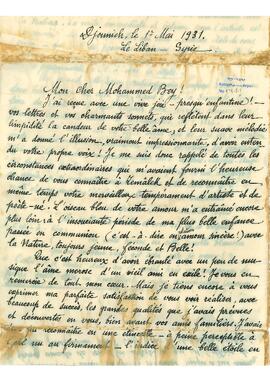 Djounieh, le 1er Mai 1931.
Le Liban – Syrie
Mon Cher Mohammed Bey!
J'ai reçue avec une vive joie – presqu'enfantine! –
vos lettres et vos charmants sonnets, qui reflètent dans leur
limpidité la candeur de votre belle âme, et leur suave mélodie
m'a donné l'illusion, vraiment impressionnante, d'avoir entendu
votre propre voix! Je me suis donc rappelé de toutes les
circonstances extraordinaires qui m'avaient fourni l'heureuse
chance de vous connaître à Remâlek et de reconnaître en
même temps votre merveilleux tempérament d'artiste et de
poète
et m'a entraîné encore
plus loin à l'insouciante période de ma plus belle enfance
passée en communion (c'est-à-dire en amour sincère) avec
la Nature, toujours jeune, féconde et Belle!
Que c'est heureux d'avoir chanté avec un peu de mu-
sique l'âme morose d'un vieil ami en exil! Je vous en
remercie de tout mon cœur. Mais je tiens encore à vous
exprimer ma parfaite satisfaction de vous voir réaliser, avec
beaucoup de succès, les grandes qualités que j'avais prévues
et découvertes en vous, bien avant vos amis familiers. J'avais
pu reconnaître en une étincelle – à peine perceptible à
pied nu au firmament – l'indice d'une belle étoile en